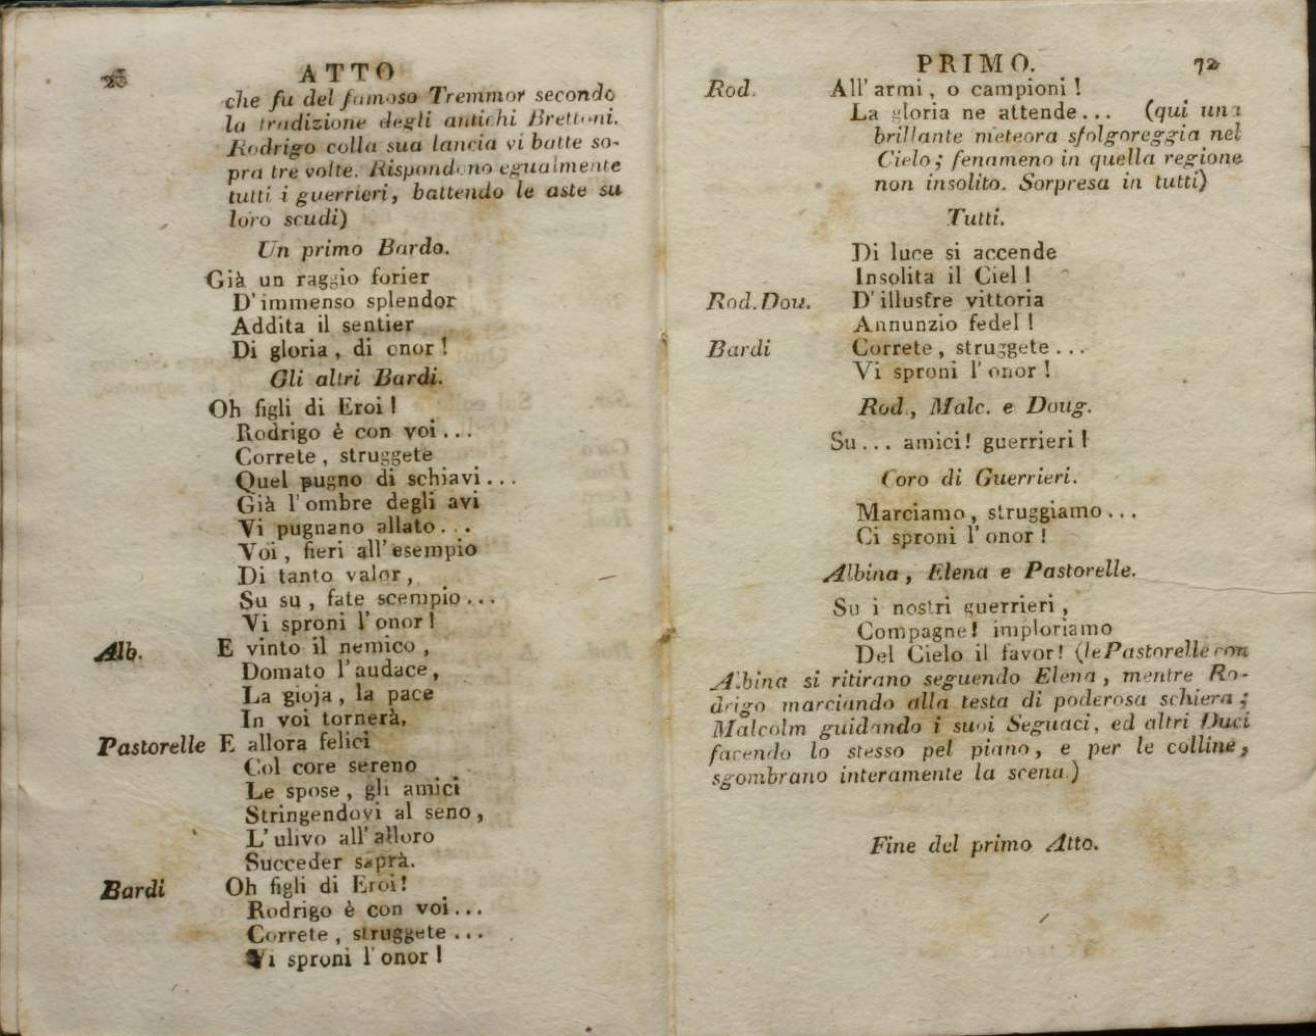 ATTO
che fu del famoso Tremmor secondo
la tradizione degli antichi Brettoni.
Rodrigo colla sua lancia vi batte so-
pra tre volte. Rispondono egualmente
tutti i guerrieri, battendo le aste su
loro scudi)
Un primo Bardo.
Già un raggio forier
D'immenso splendor
Addita il sentier
Di gloria, di onor!
Gli altri Bardi.
Oh figli di Eroi!
Rodrigo è con voi...
Correte, struggete
Quel pugno di schiavi...
Già l'ombre degli avi
Vi pugnano allato...
Voi, fieri all'esempio
Di tanto valor,
Su su, fate scempio...
Vi sproni l'onor!
Alb. E vinto il nemico,
Domato l'audace,
La gioja, la pace
In voi tornerà.
Pastorelle E allora felici
Col core sereno
Le spose, gli amici
Stringendovi al seno,
L'ulivo all'alloro
Succeder saprà.
Bardi Oh figli di Eroi!
Rodrigo è con voi...
Correte, struggete...
Vi sproni l'onor!
PRIMO. 72
Rod. All'armi, o campioni!
La gloria ne attende... (qui una
brillante meteora sfolgoreggia nel
Cielo; fenameno in quella regione
non insolito. Sorpresa in tutti)
Tutti.
Di luce si accende
Insolita il Ciel!
Rod. Dou. D'illustre vittoria
Annunzio fedel!
Bardi Correte, struggete...
Vi sproni l'onor!
Rod., Malc. e Doug.
Su... amici! guerrieri!
Coro di Guerrieri.
Marciamo, struggiamo...
Ci sproni l'onor!
Albina, Elena e Pastorelle.
Su i nostri guerrieri,
Compagne! imploriamo
Del Cielo il favor! (le Pastorelle con
Albina si ritirano seguendo Elena, mentre Ro-
drigo marciando alla testa di poderosa schiera;
Malcolm guidando i suoi Seguaci, ed altri Duci
facendo lo stesso pel piano, e per le colline,
sgombrano interamente la scena.)
Fine del primo Atto.